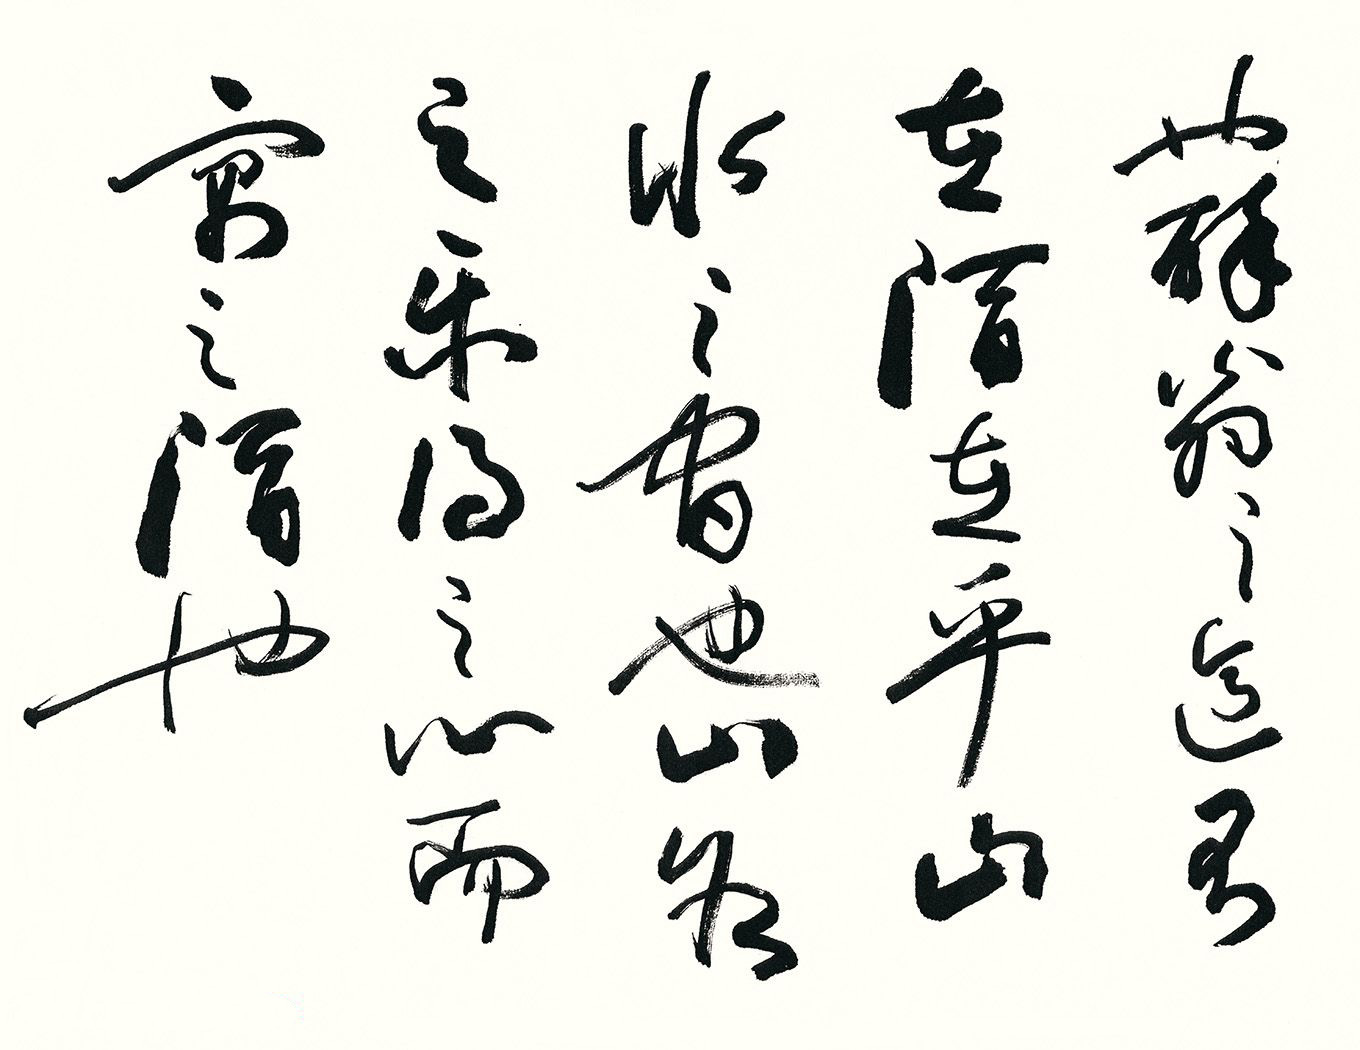 也醉翁之意不
在酒在乎山
水之間也山水
之樂得之心而
寓之酒也